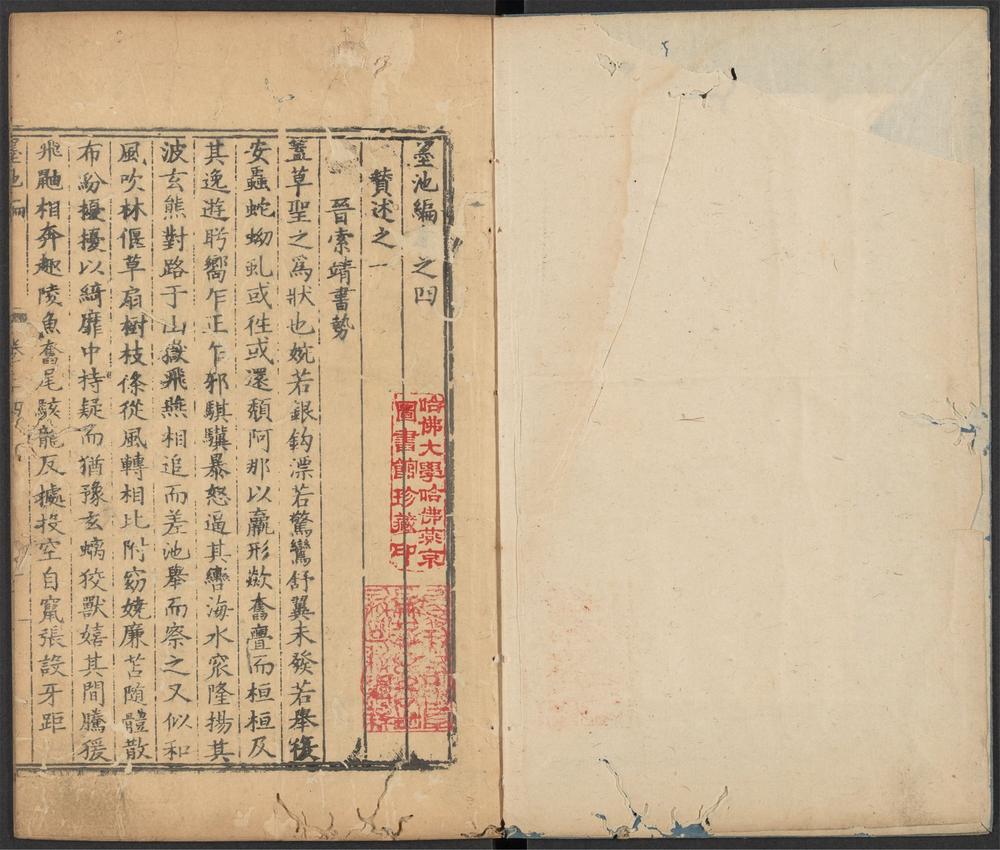 墨池編 之四
贊述之一
晉索靖書勢
蓋草聖之爲狀也婉若銀鈎漂若驚鸞舒翼未發若舉復
安蟲蛇蚴虬或徃或還頹阿那以羸形歘奮亹而桓桓及
其逸遊盻嚮乍正乍邪騏驥暴怒逼其轡海水窊隆揚其
波玄熊對路于山嶽飛燕相追而差池舉而察之又似和
風吹林偃草扇樹枝條從風轉相比附窈嬈廉苫随體散
布紛擾擾以綺靡中持疑而猶豫玄螭狡獸嬉其間騰猨
飛鼬相奔趣陵魚奮尾駭龍反據投空自竄張設牙距
墨池編
哈佛大學哈佛燕京
圖書館珍藏印